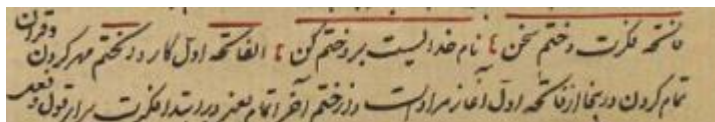 فاتحه فکرت و ختم سخن نام خدایست برو ختم کن الفاتحه اول کار و الختم مهر کردن و قرآن
تمام کردن درینجا از فاتحه اول آغاز مرادست و از ختم آخر اتمام یعنی در ابتدا فکرت قول و